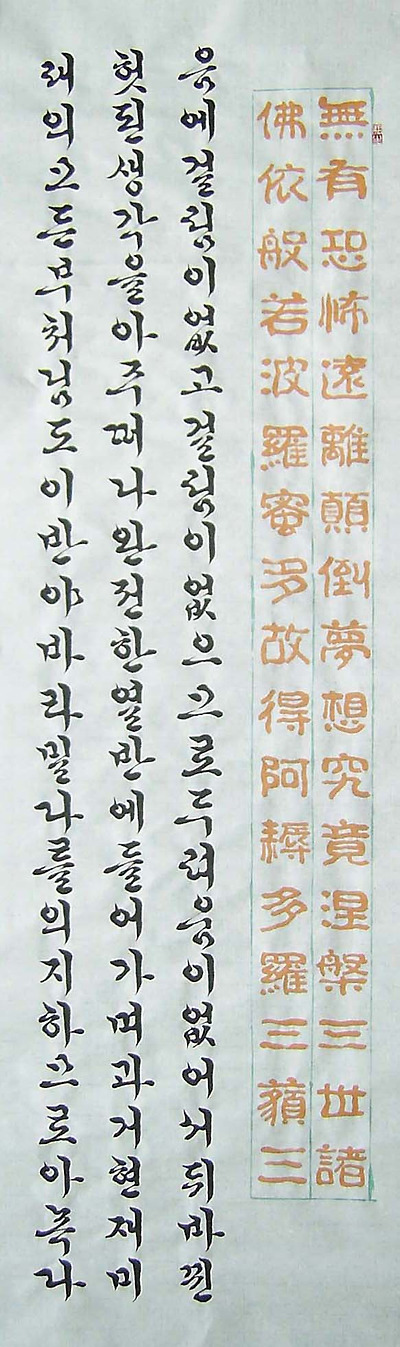 無有恐怖遠離顛倒夢想究竟涅槃三世諸
佛依般若波羅蜜多故得阿耨多羅三藐三
음에걸림이없고걸림이없으므로두려움이없어서뒤바뀐
헛된생각을아주떠나완전한열반에들어가며과거현재미
래의모든부처님도이반야바라밀다를의지하므로아뇩다